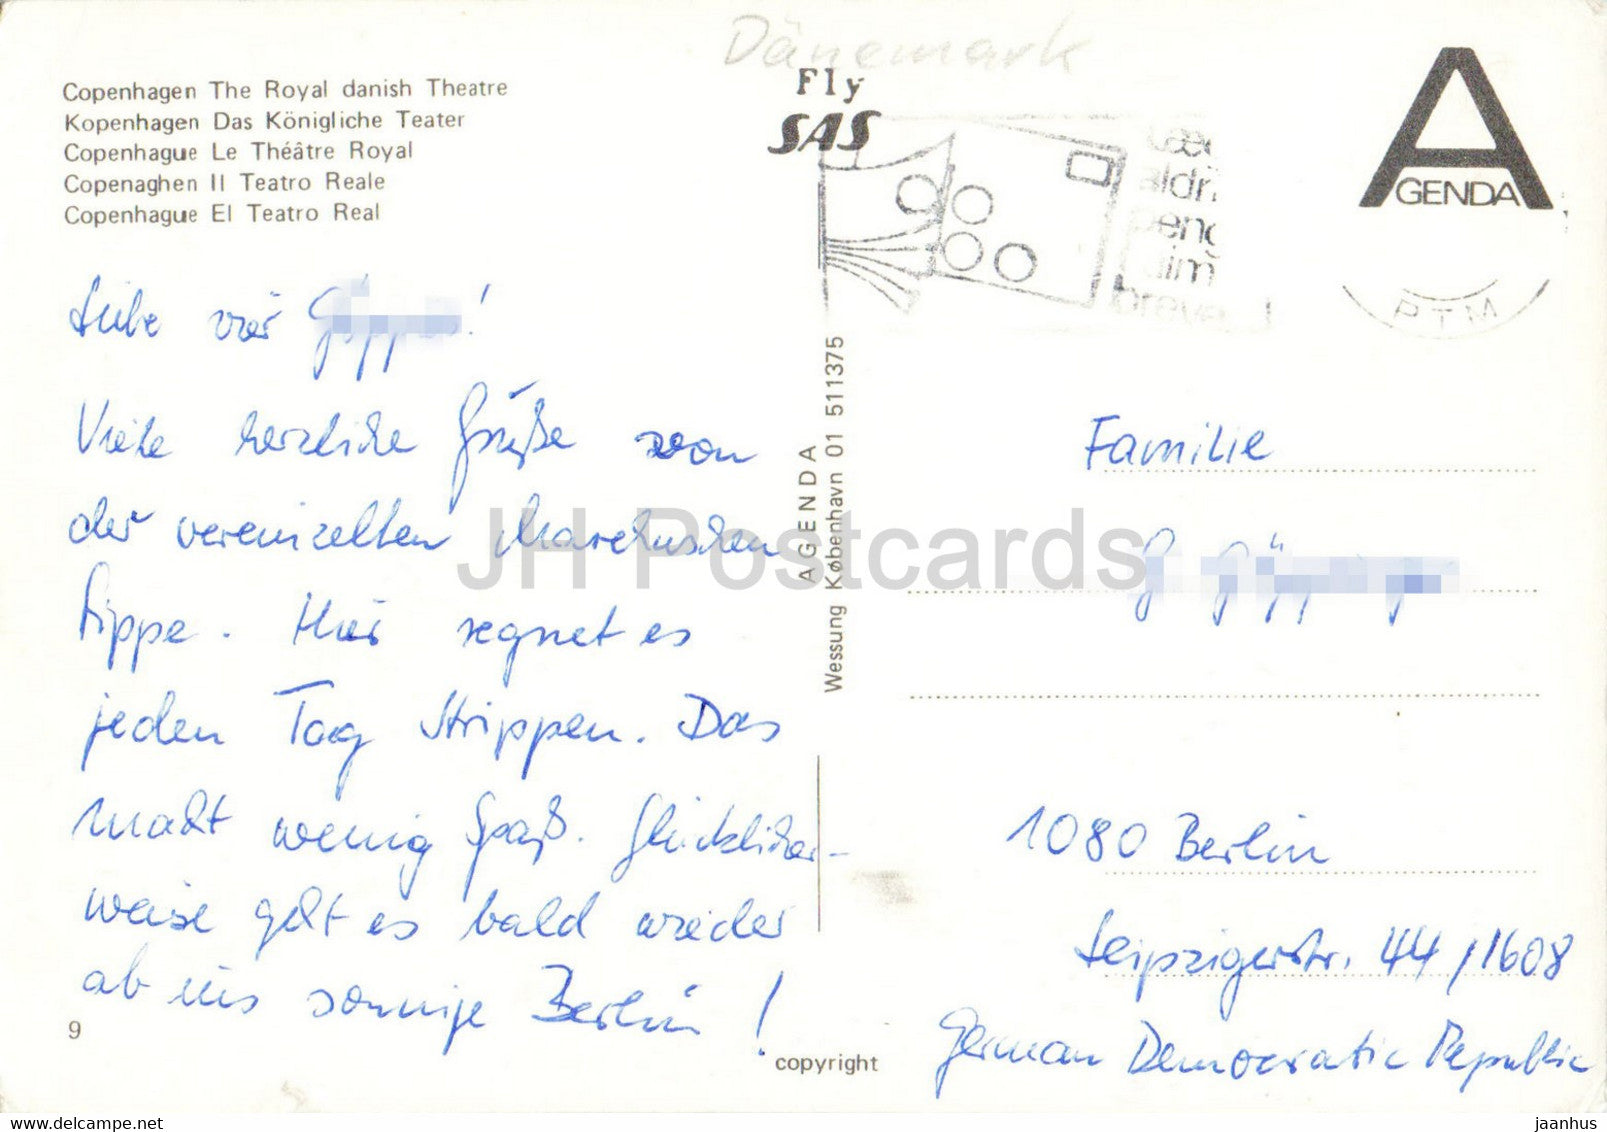 Dänemark
Copenhagen The Royal danish Theatre
Kopenhagen Das Königliche Teater
Copenhague Le Théâtre Royal
Copenaghen Il Teatro Reale
Copenhague El Teatro Real
Fly
SAS
AGENDA
PTM
Liebe vier !
Viele herzliche Grüße von
der vereinzelten
Sippe. Hier regnet es
jeden Tag Strippen. Das
macht wenig Spaß. Glücklicher-
weise geht es bald wieder
ab ins sonnige Berlin!
9
AGENDA
Wessung København 01 511375
copyright
Familie
G.
1080 Berlin
Leipzigerstr. 44/1608
German Democratic Republic
JH Postcards
www.delcampe.net
jaanhus